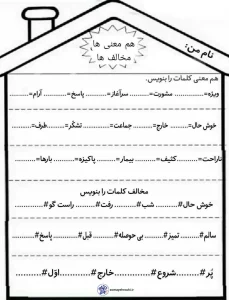 نام من:
هم معنی ها
مخالف ها
هم معنی کلمات را بنویس.
ویژه=.......... مشورت=.......... سرآغاز=.......... پاسخ=.......... آرام=..........
خوش حال=.......... خارج=.......... جماعت=.......... تشکّر=..........طرف=..........
ناراحت=..........کثیف=.......... بیمار=.......... پاکیزه=.......... بارها=..........
مخالف کلمات را بنویس
خوش حال#.......... شب#.......... رفت#.......... راست گو#..........
سالم#.......... تمیز#.......... بی حوصله#.......... قبل#.......... پاسخ#..........
پُر#..........شروع#..........خارج#..........اوّل#..........